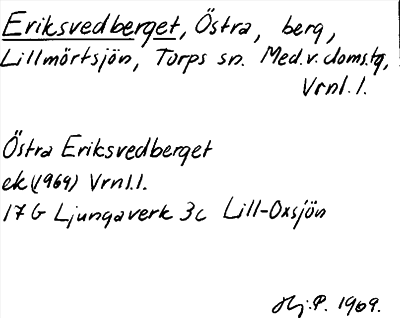 Eriksvedberget, Östra, berg,
Lillmörtsjön, Torps sn. Med. v. domstg,
Vrnl. l.
Östra Eriksvedberget
ek (1969) Vrnl. l.
17 G Ljungaverk 3c Lill-Oxsjön
Hj. P. 1969.